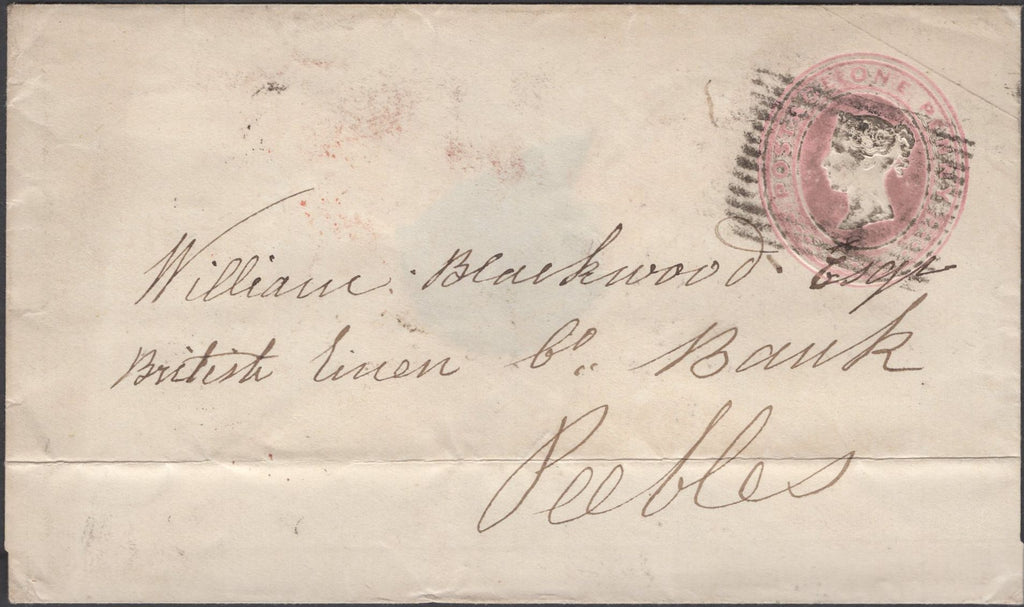 POSTAGE ONE PENNY
William Blackwood. Esqr
British Linen Co. Bank
Peebles